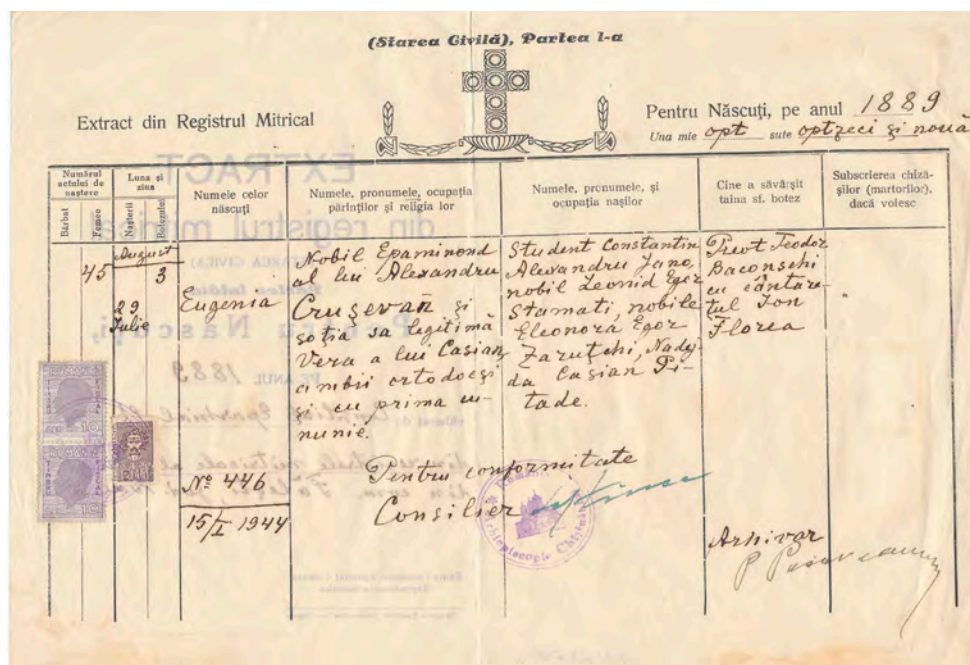 (Starea Civilă), Partea I-a
Extract din Registrul Mitrical
Pentru Născuți, pe anul 1889
Una mie opt sute optzeci și nouă
Numărul actului de naștere
Bărbat
Femee
Luna și ziua
Nașterii
Botezului
Numele celor născuți
Numele, pronumele, ocupația
părinților și religia lor
Numele, pronumele, și
ocupația nașilor
Cine a săvârșit
taina sf. botez
Subscrierea chiză-
șilor (martorilor),
dacă voiesc
45
August
3
29
Iulie
Eugenia
Nobil Epaminond
al lui Alexandru
Crușevan și
soția sa legitimă
Vera a lui Casian,
ambii ortodocși
și cu prima cu-
nunie.
Student Constantin
Alexandru Jano,
nobil Leonid Egor
Stamati, nobile
Eleonora Egor
Zaruțchi, Nadej-
da Casian Pi-
tade.
Preot Teodor
Baconschi
cu cântăre-
tul Ion
Florea
Nº 446
15/I 1944
Pentru conformitate
Consilier
Arhivar
EXTRACT
din registrul mitrical
(STAREA CIVILĂ)
Pentru Născuți,
PE ANUL 1889